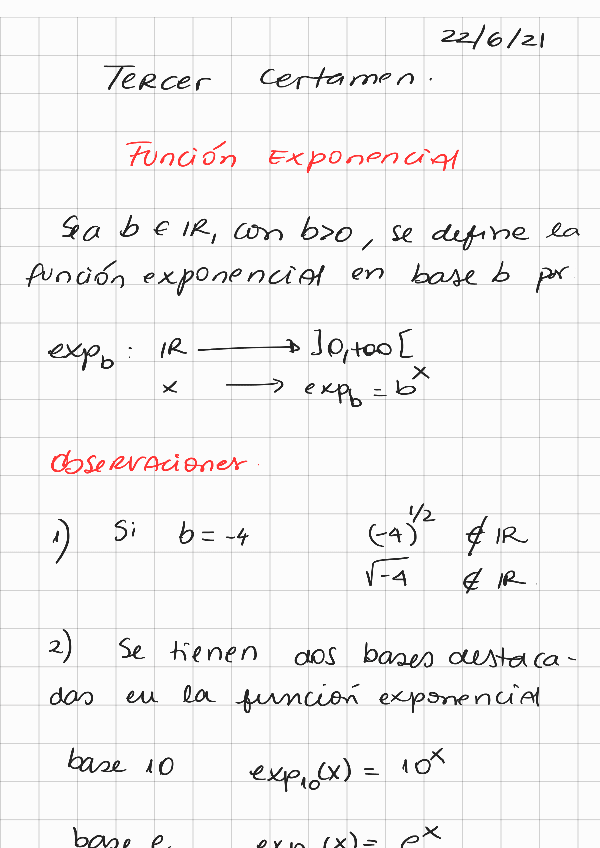 22/6/21
Tercer Certamen.
Función Exponencial
Sea b ∈ IR, con b>0, se define la
función exponencial en base b por
exp_b : IR ⟶ ]0,+∞[
x ⟶ exp_b = b^x
Observaciones.
1) Si b = -4 (-4)^1/2 ∉ IR
√-4 ∉ IR.
2) Se tienen dos bases destaca-
das en la función exponencial
base 10 exp_10(x) = 10^x
base e, exp (x) = e^x